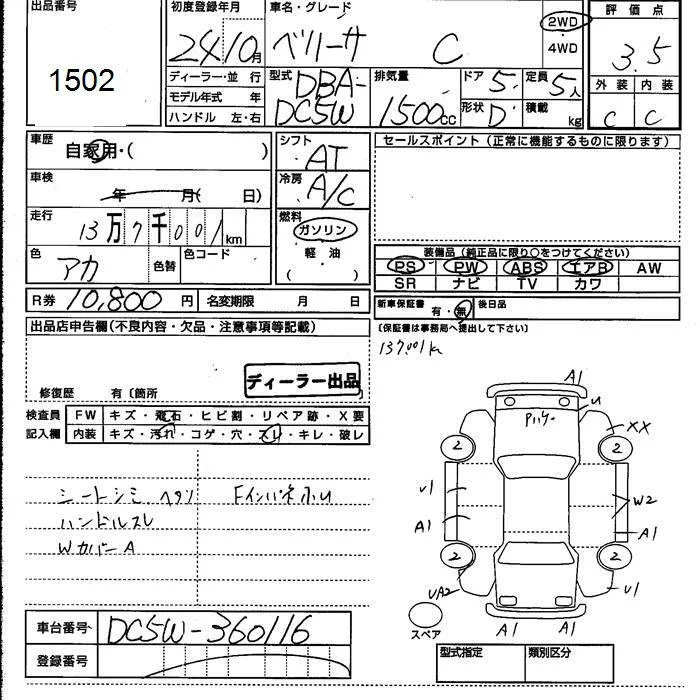 出品番号
1502
初度登録年月
24 10月
車名・グレード
ベリーサ C
2WD
・
4WD
評価点
3.5
外装 内装
C C
ディーラー・並行
モデル年式 年
ハンドル 左・右
型式
DBA-
DC5W
排気量
1500cc
ドア 5
形状 D
定員 5人
積載 kg
車歴
自家用・( )
車検
年 月( 日)
走行
13万7千001km
色
アカ
色替
色コード
シフト
AT
冷房
A/C
燃料
ガソリン
軽油
( ・ )
セールスポイント(正常に機能するものに限ります)
装備品(純正品に限り○をつけてください)
PS PW ABS エアB AW
SR ナビ TV カワ
新車保証書 有・無 後日品
(保証書は事務局へ提出して下さい)
R券 10,800円 名変期限 月 日
出品店申告欄(不良内容・欠品・注意事項等記載)
137,001k
ディーラー出品
修復歴 有〔箇所
検査員 FW キズ・飛石・ヒビ割・リペア跡・X要
記入欄 内装 キズ・汚れ・コゲ・穴・スレ・キレ・破レ
シートシミ ヘタリ
ハンドルスレ
Wカバー A
A1
U
XX
2 2
U1 W2
A1 A1
2 2
UA2 U1
スペア
A1 A1
車台番号 DC5W-360116
登録番号
型式指定 類別区分